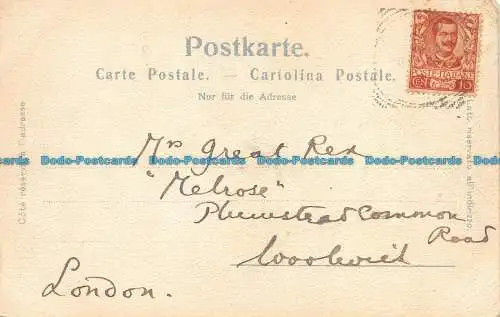 Postkarte.
Carte Postale. — Cartolina Postale.
Nur für die Adresse
POSTE ITALIANE
CEN 10
Côté réservé à l'adresse
Lato riservato all'indirizzo.
Mrs Great Rex
"Melrose"
Plumstead Common
Road
Woolwich
London.
Dodo-Postcards Dodo-Postcards Dodo-Postcards Dodo-Postcards
Dodo-Postcards Dodo-Postcards Dodo-Postcards Dodo-Postcards